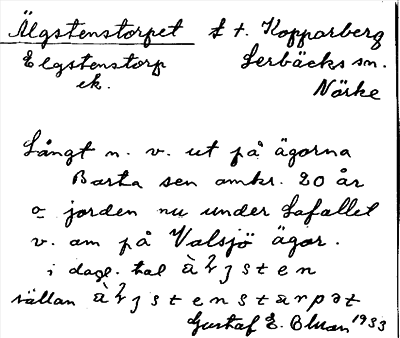 Älgstenstorpet f. t. Kopparberg
Elgstenstorp Lerbäcks sn.
ek. Närke
Långt n. v. ut på ägorna
Borta sen omkr. 20 år
o jorden nu under Lafallet
v. om på Valsjö ägor.
i dagl. tal
sällan
Gustaf E. Bluan 1933